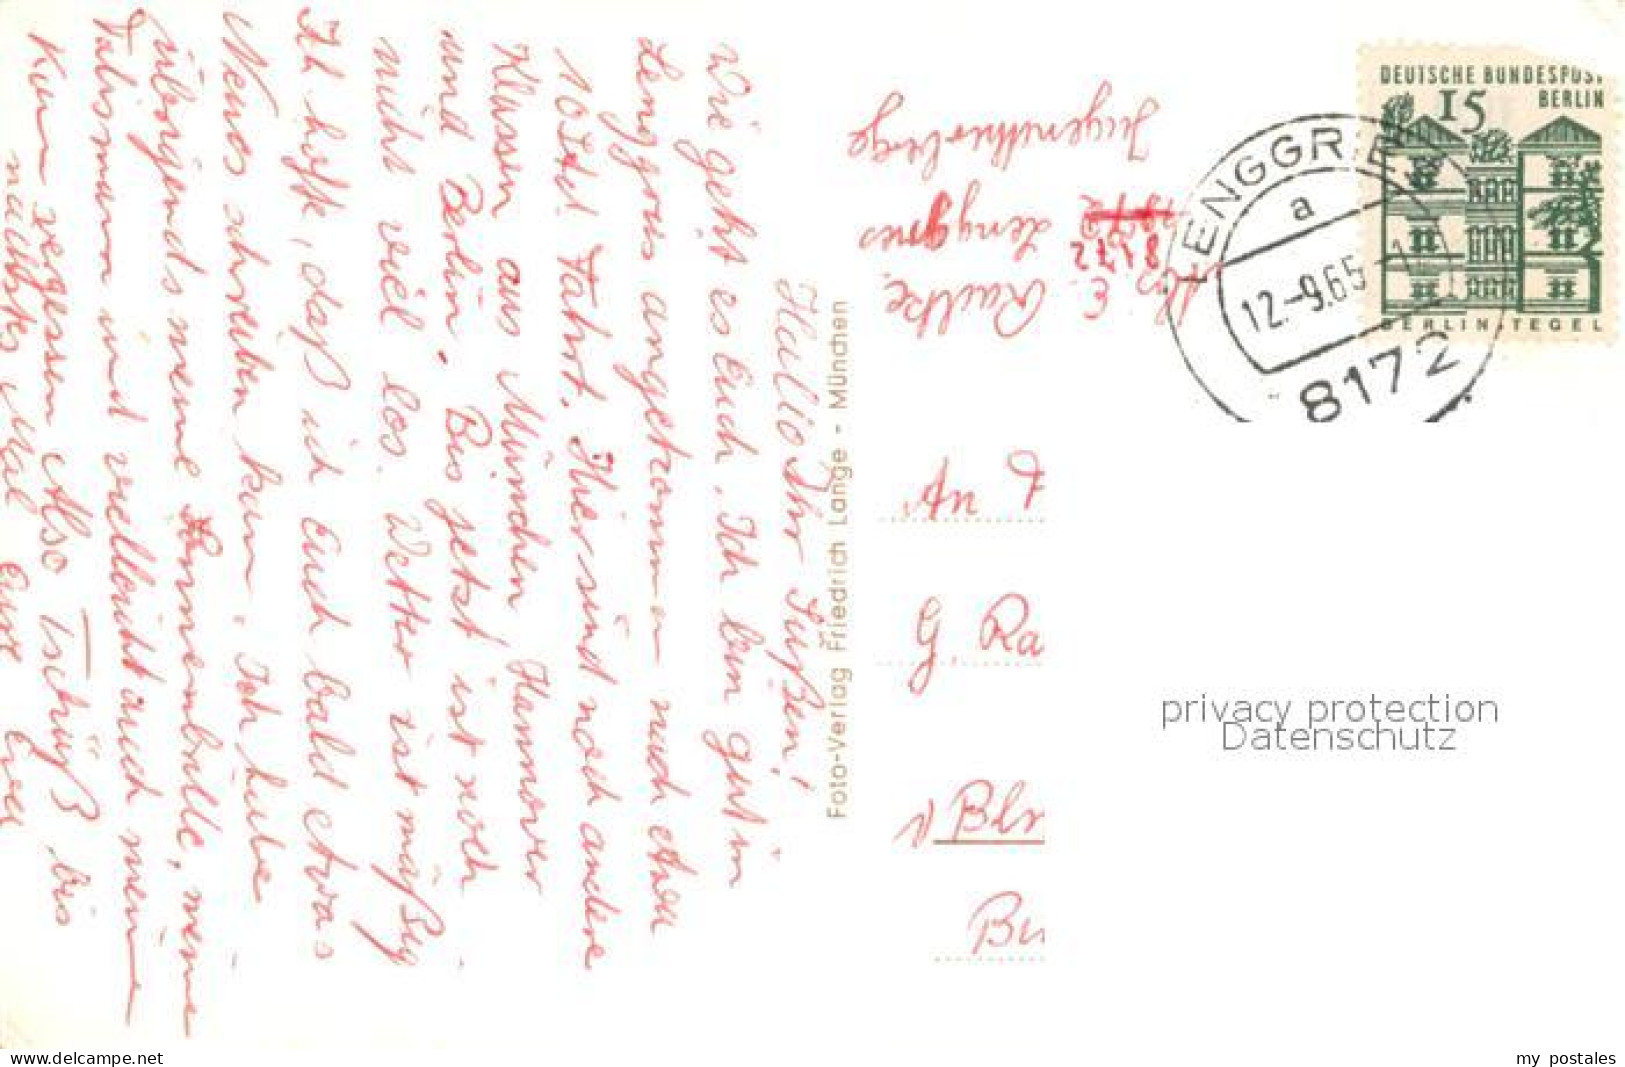 Hallo Ihr Süßen!
Wie geht es Euch. Ich bin gut in
Lenggries angekommen nach etwa
10 Std Fahrt. Hier sind noch andere
Klassen aus München, Hannover
und Berlin. Bis jetzt ist noch
nicht viel los. Wetter ist mäßig.
Ich hoffe, daß ich Euch bald etwas
Neues schreiben kann. Ich habe
übrigends meine Sonnenbrille, meine
Talismann und vielleicht auch meine
vergessen Also Tschüß, bis
nächstes Mal Eure
Foto-Verlag Friedrich Lange - München
Abs E.
8172 Lenggries
Jugendherberge
DEUTSCHE BUNDESPOST
BERLIN
15
BERLIN-TEGEL
LENGGRIES
a
12.-9.65-1
8172
An
G. Ra
Bln
privacy protection
Datenschutz
www.delcampe.net
my postales